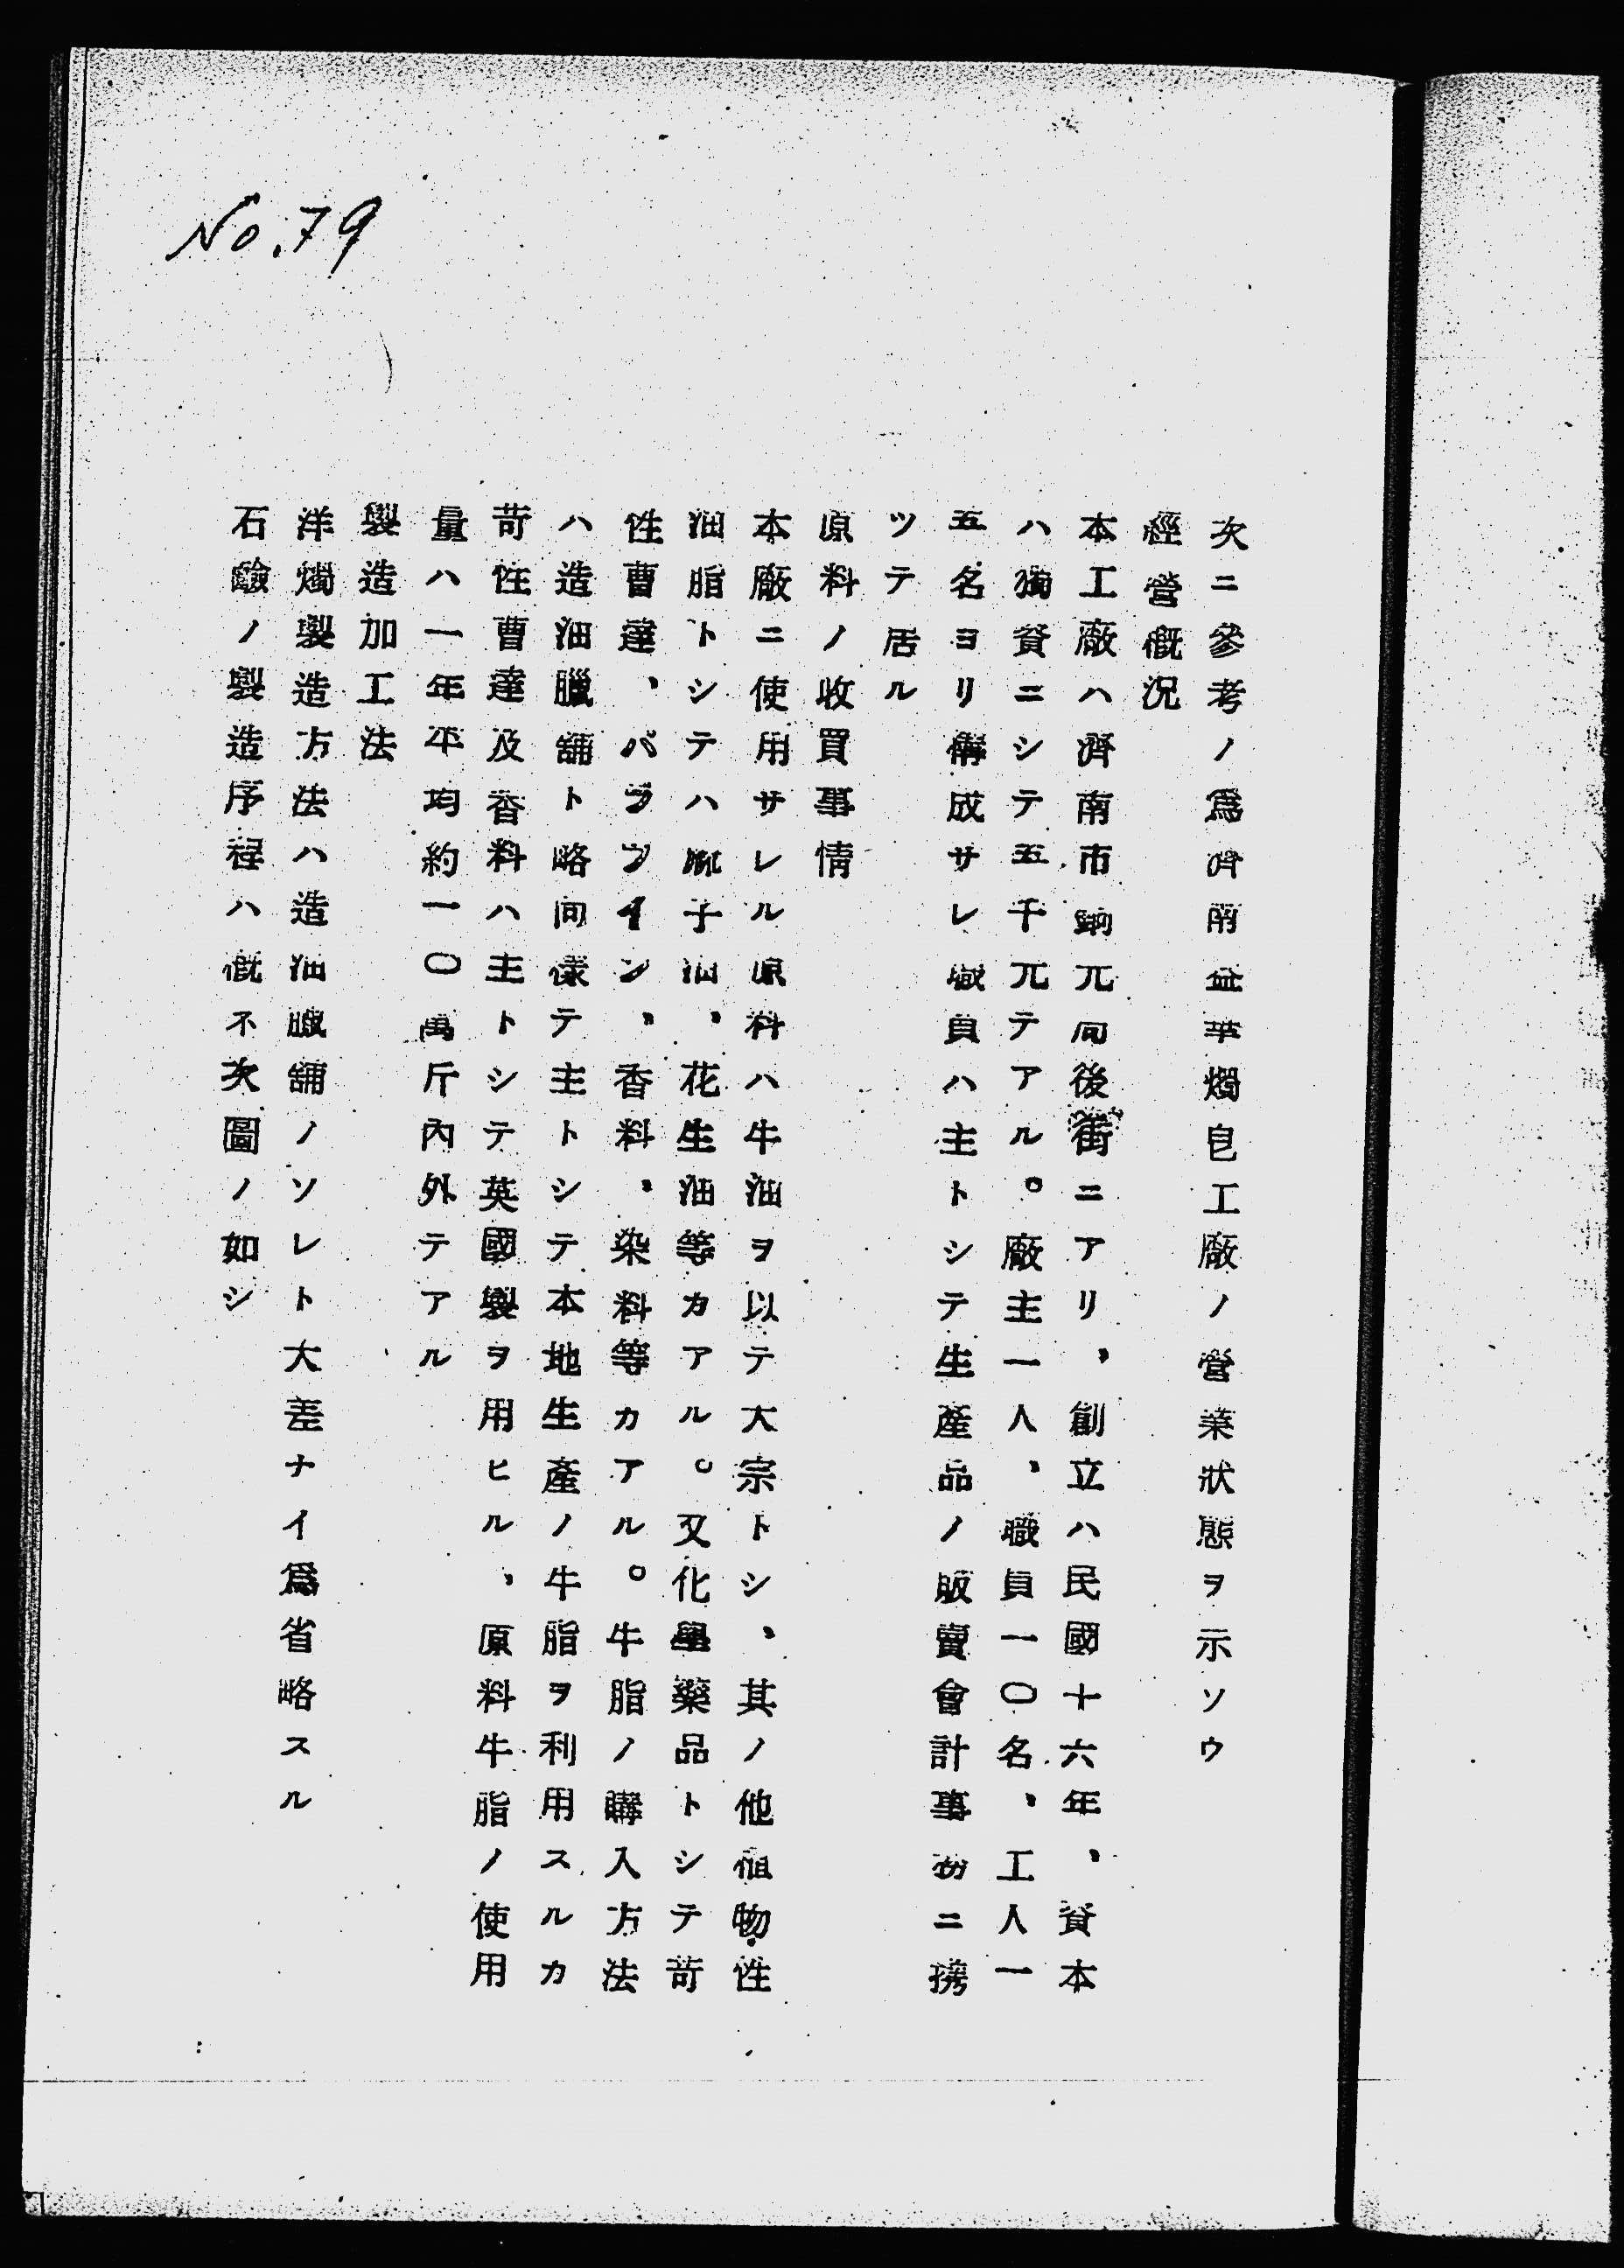 No.79
次ニ參考ノ爲濟南益華燭皀工廠ノ營業狀態ヲ示ソウ
經營槪況
本工廠ハ濟南市銅元局後街ニアリ、創立ハ民國十六年、資本
ハ獨資ニシテ五千元テアル。廠主一人、職員一〇名、工人一
五名ヨリ構成サレ職員ハ主トシテ生產品ノ販賣會計事務ニ携
ツテ居ル
原料ノ收買事情
本廠ニ使用サレル原料ハ牛油ヲ以テ大宗トシ、其ノ他植物性
油脂トシテハ瓶子油、花生油等カアル。又化學藥品トシテ苛
性曹達、パラフイン、香料、染料等カアル。牛脂ノ購入方法
ハ造油臘舖ト略同樣テ主トシテ本地生產ノ牛脂ヲ利用スルカ
苛性曹達及香料ハ主トシテ英國製ヲ用ヒル、原料牛脂ノ使用
量ハ一年平均約一〇萬斤內外テアル
製造加工法
洋燭製造方法ハ造油臘舖ノソレト大差ナイ爲省略スル
石鹼ノ製造序程ハ槪ネ次圖ノ如シ